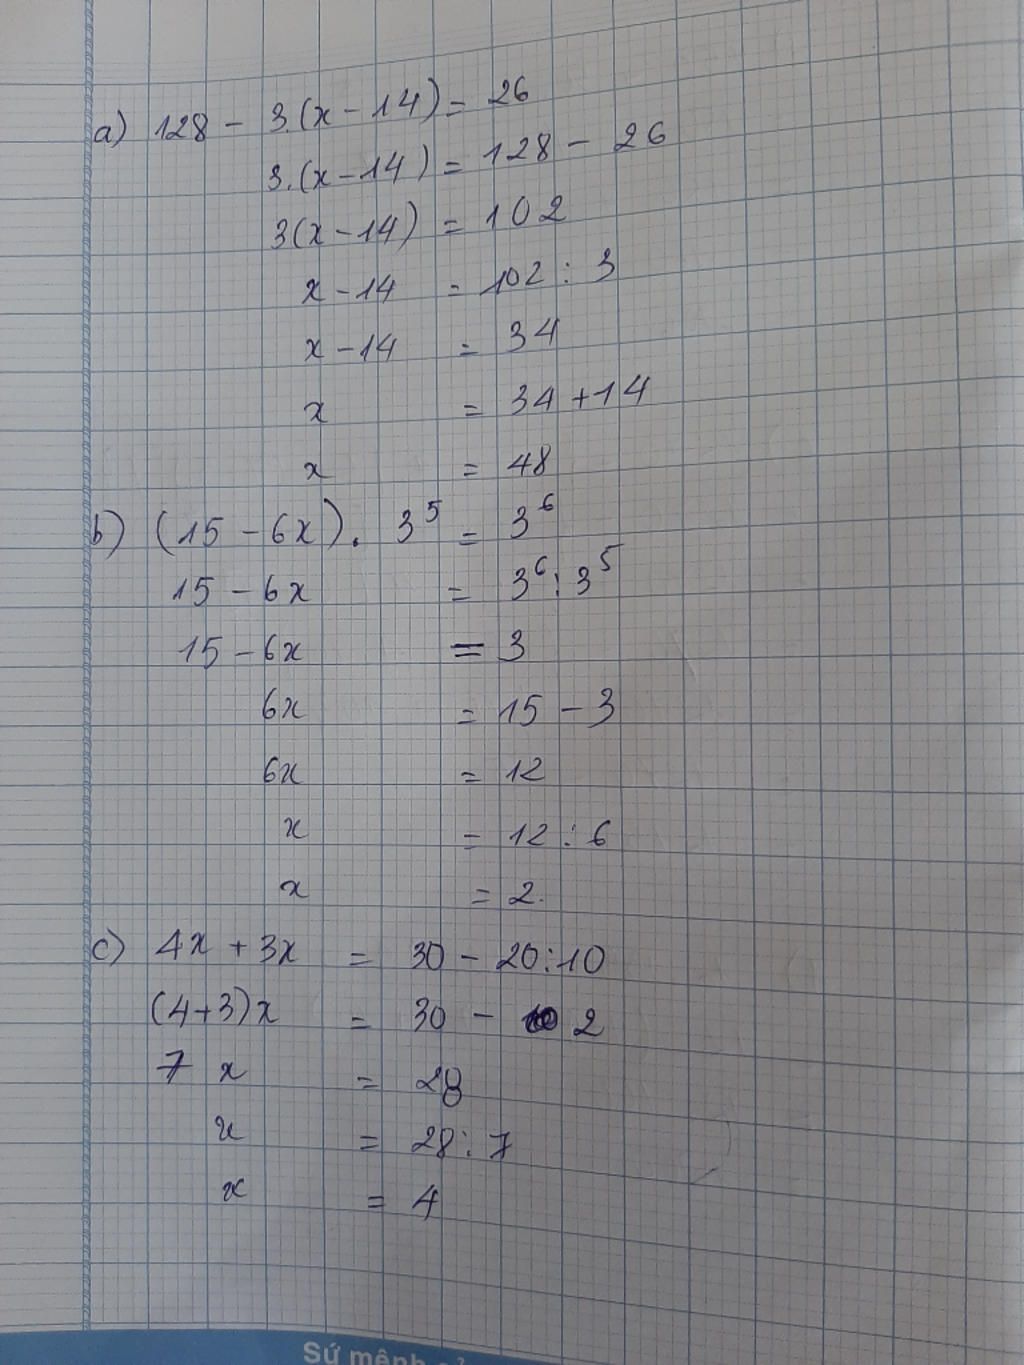 a) 128 - 3.(x - 14) = 26
3.(x - 14) = 128 - 26
3(x - 14) = 102
x - 14 = 102 : 3
x - 14 = 34
x = 34 + 14
x = 48
b) (15 - 6x). 3⁵ = 3⁶
15 - 6x = 3⁶ : 3⁵
15 - 6x = 3
6x = 15 - 3
6x = 12
x = 12 : 6
x = 2.
c) 4x + 3x = 30 - 20 : 10
(4+3)x = 30 - 2
7 x = 28
x = 28 : 7
x = 4
Sứ mệnh